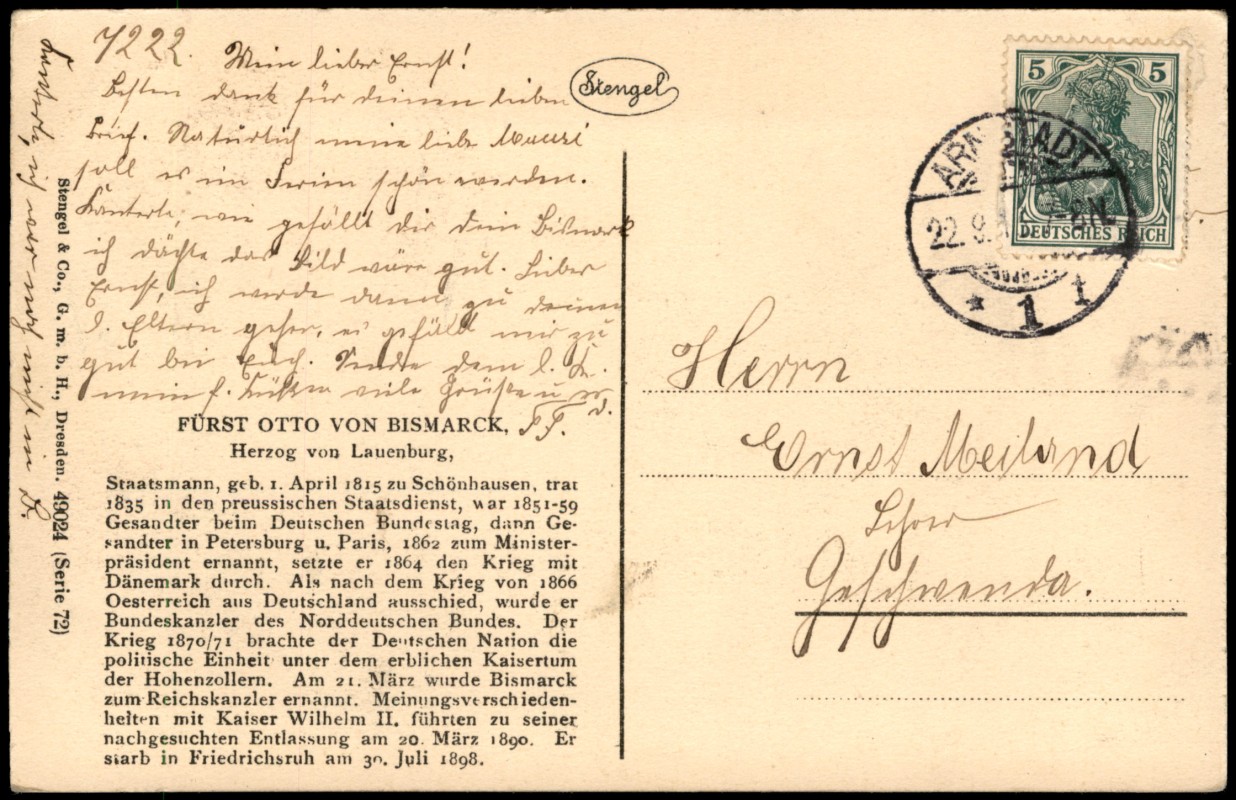 7222.
Mein lieber Ernst!
Besten dank für deinen lieben
Brief. Natürlich meine liebe
soll es im schön werden.
wie gefällt dir dein Bismark
ich dächte das Bild wäre gut. Lieber
Ernst, ich werde dann zu deinen
l. Eltern gehen, es gefällt mir zu
gut bei Euch. Sende dem l.
mein l. viele Grüße u.
d.
ich war noch nicht in
Stengel
Stengel & Co., G. m. b. H., Dresden. 49024 (Serie 72)
FÜRST OTTO VON BISMARCK,
Herzog von Lauenburg,
Staatsmann, geb. 1. April 1815 zu Schönhausen, trat
1835 in den preussischen Staatsdienst, war 1851-59
Gesandter beim Deutschen Bundestag, dann Ge-
sandter in Petersburg u. Paris, 1862 zum Minister-
präsident ernannt, setzte er 1864 den Krieg mit
Dänemark durch. Als nach dem Krieg von 1866
Oesterreich aus Deutschland ausschied, wurde er
Bundeskanzler des Norddeutschen Bundes. Der
Krieg 1870/71 brachte der Deutschen Nation die
politische Einheit unter dem erblichen Kaisertum
der Hohenzollern. Am 21. März wurde Bismarck
zum Reichskanzler ernannt. Meinungsverschieden-
heiten mit Kaiser Wilhelm II. führten zu seiner
nachgesuchten Entlassung am 20. März 1890. Er
starb in Friedrichsruh am 30. Juli 1898.
5 5
DEUTSCHES REICH
ARNSTADT
22.9.
* 1 1
Herrn
Ernst Meiland
Geschwenda.